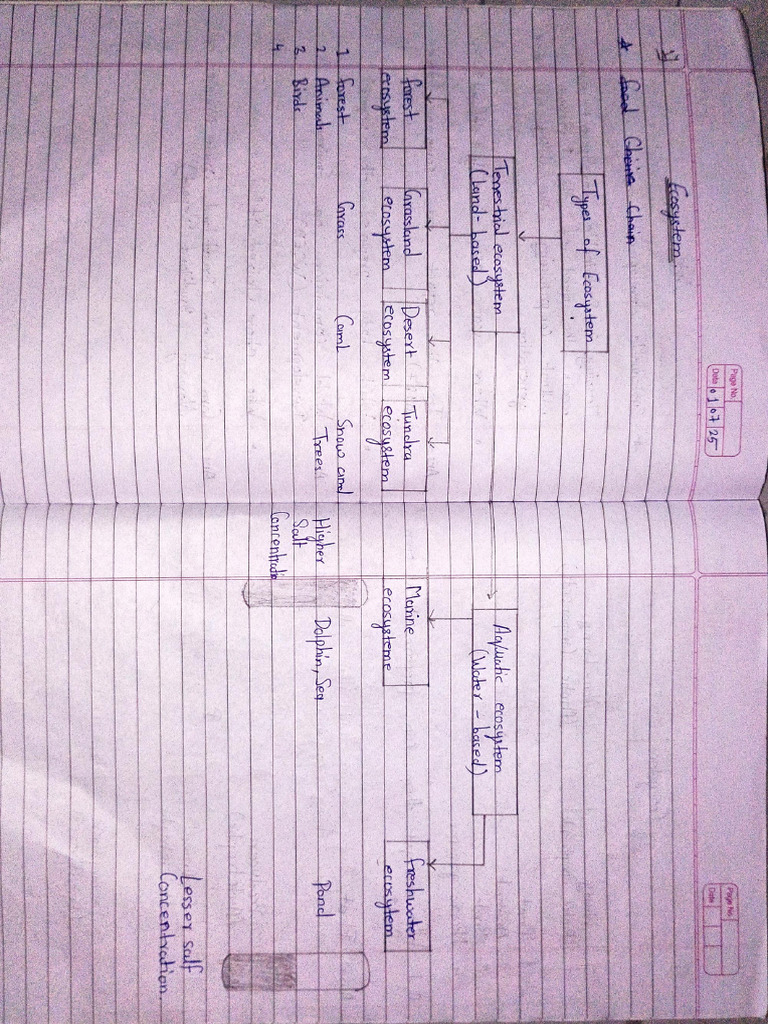 Page No.
Date 01 07 25
1)
Ecosystem
Types of Ecosystem.
Terrestrial ecosystem
(Land-based)
Forest
ecosystem
Grassland
ecosystem
Desert
ecosystem
Tundra
ecosystem
1 Forest
Grass
Caml
Snow and
Trees
2 Animals
3 Birds
4
Page No.
Date
Aquatic ecosystem
(Water-based)
Marine
ecosysteme
Freshwater
ecosytem
Higher
Salt
Concentratio
Dolphin, Sea
Pond
Lesser salt
Concentration